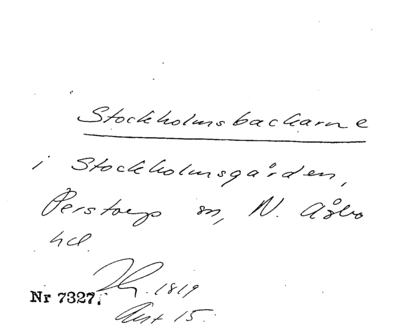 Stockholmsbackarne
i Stockholmsgården,
Perstorps sn, N. Åsbo
hd.
1819
Nr 7327.
Akt 15.